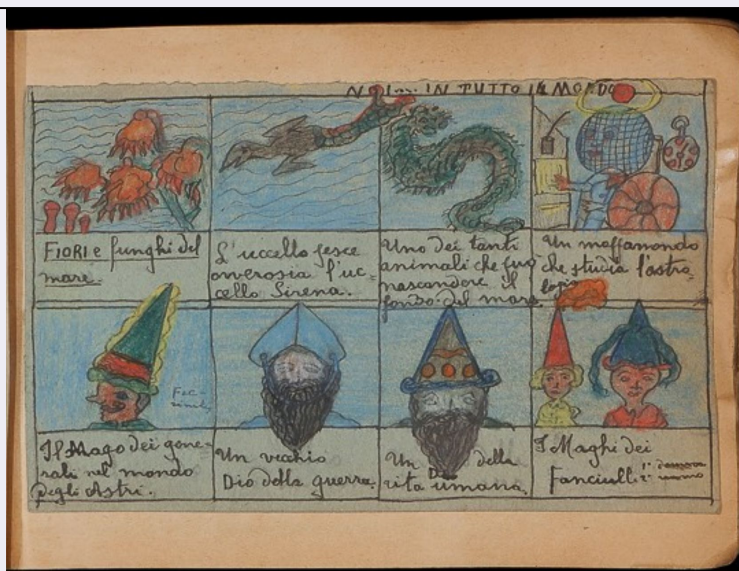 NOI... IN TUTTO IL MONDO
FIORI e funghi del
mare.
L'uccello pesce
overosia l'uc-
cello Sirena.
Uno dei tanti
animali che può
nascondere il
fondo del mare.
Un moffamondo
che studia l'astro-
logia
Fac-
simile
Il Mago dei gene-
rali nel mondo
degli Astri.
Un vecchio
Dio della guerra.
Un Dio della
vita umana.
I Maghi dei
Fanciulli.